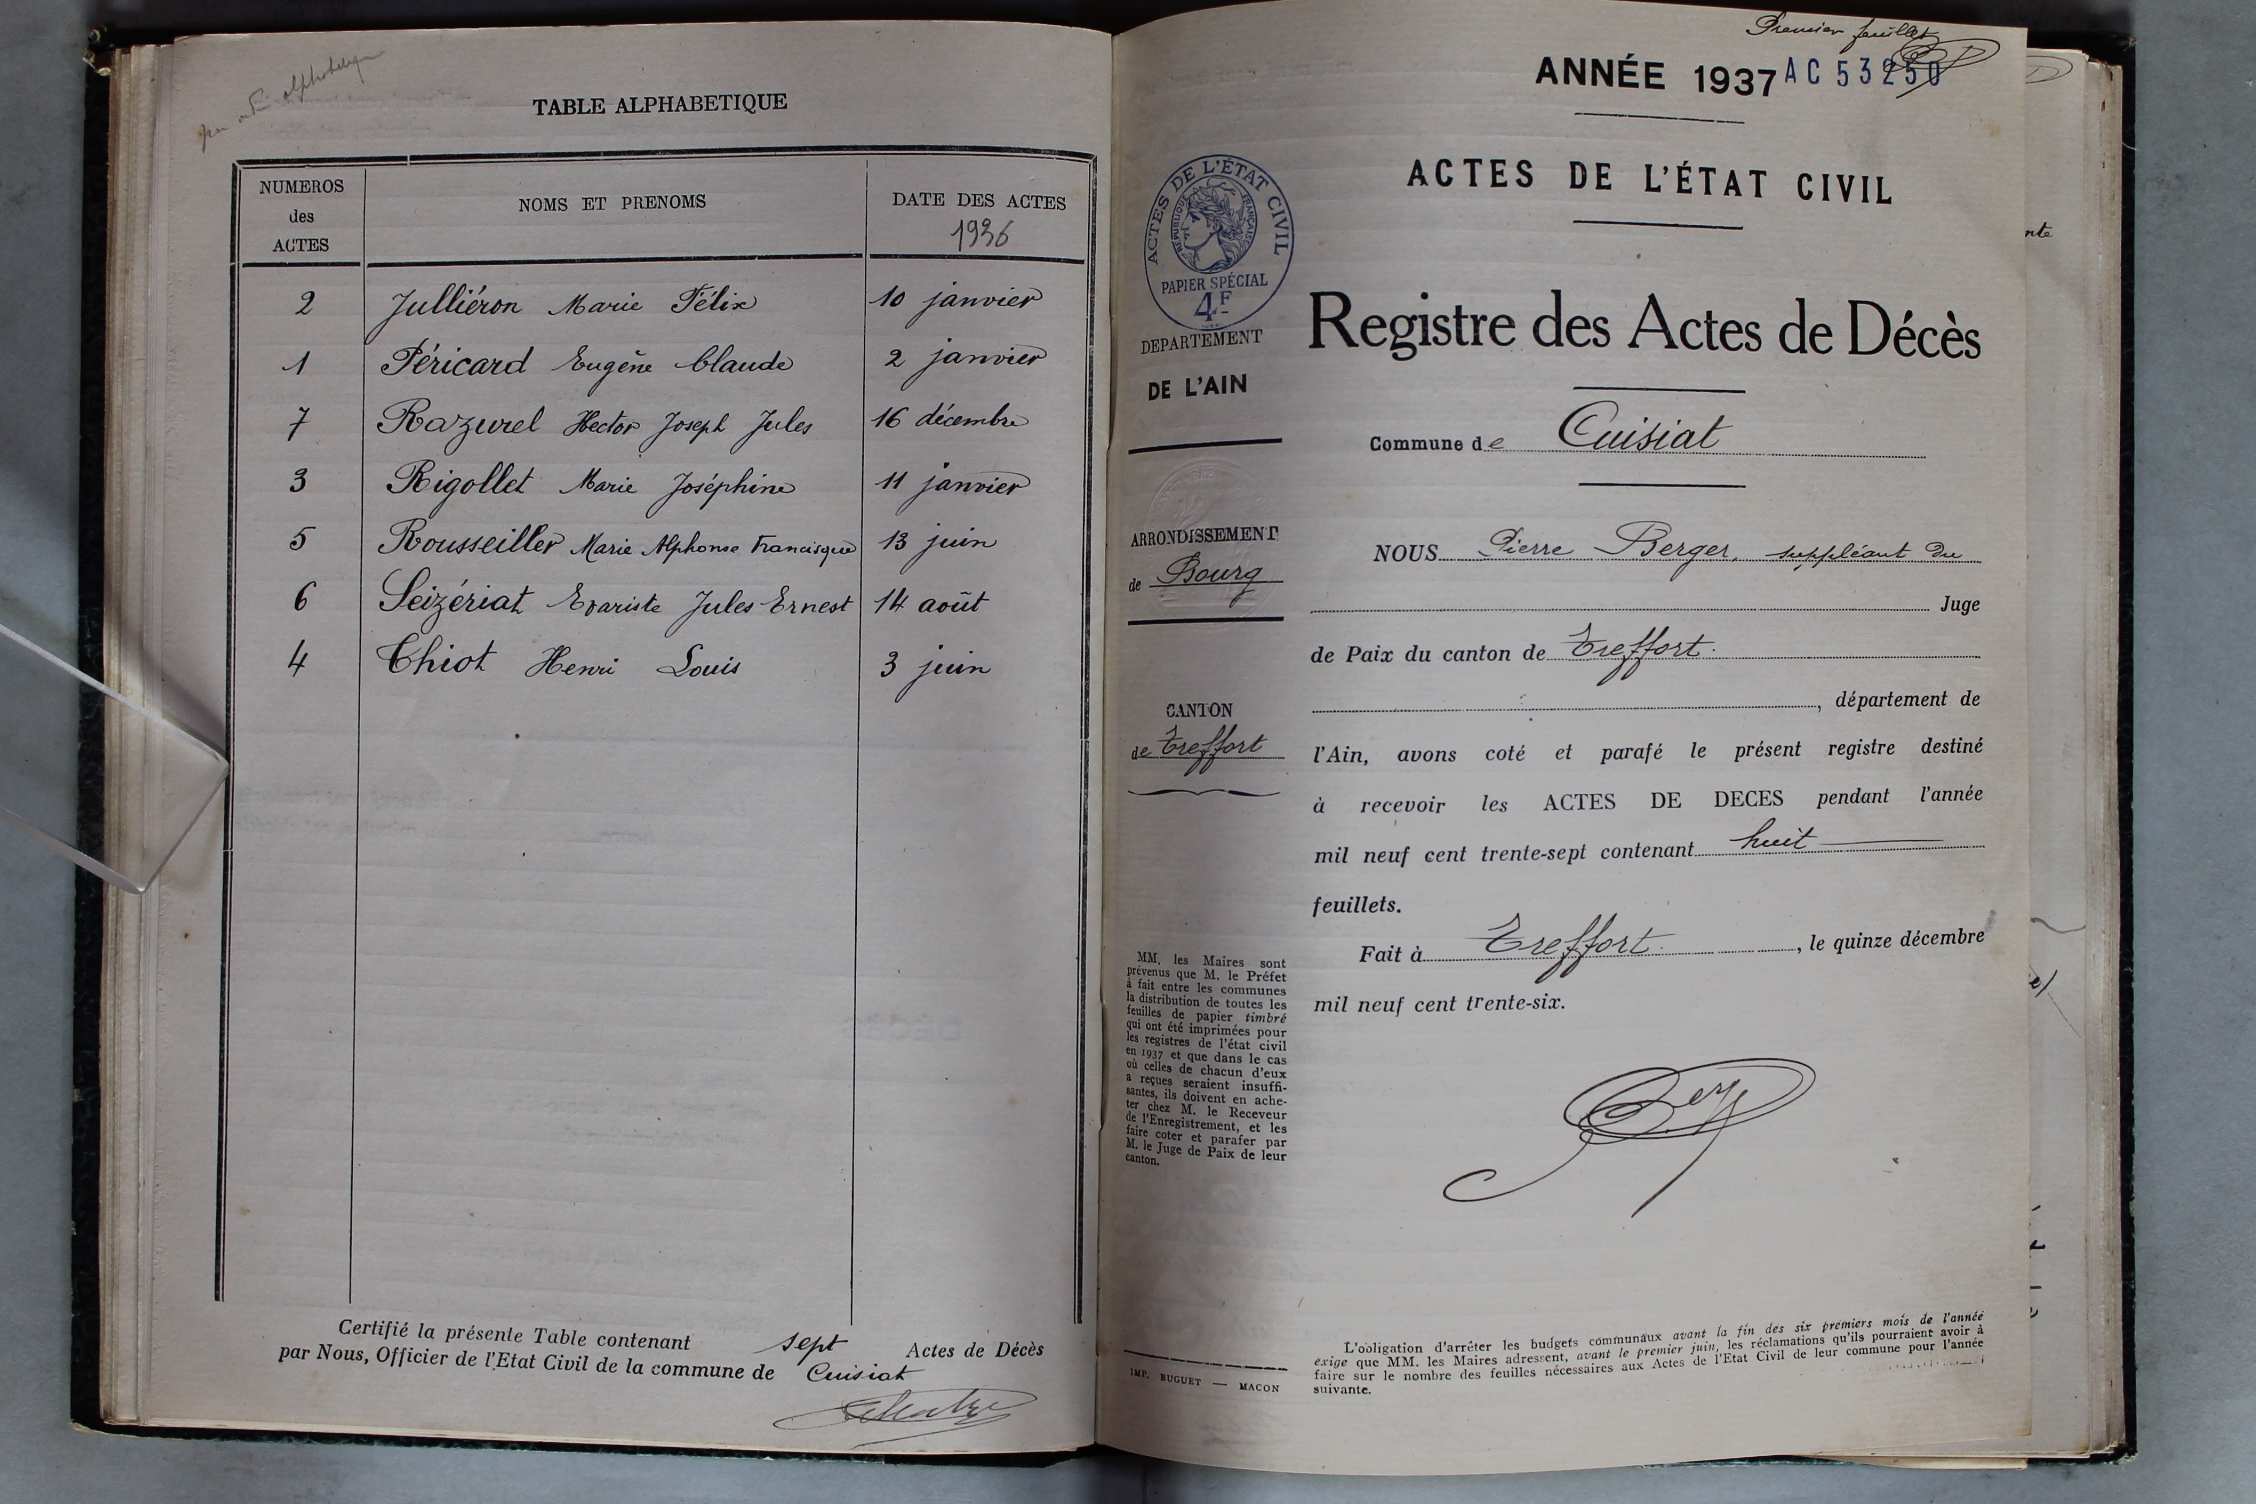 par ordre alphabétique
TABLE ALPHABETIQUE
NUMEROS des ACTES
NOMS ET PRENOMS
DATE DES ACTES
1936
2 Julliéron Marie Félix 10 janvier
1 Péricard Eugène Claude 2 janvier
7 Razurel Hector Joseph Jules 16 décembre
3 Rigollet Marie Joséphine 11 janvier
5 Rousseiller Marie Alphonse Francisque 13 juin
6 Seizériat Evariste Jules Ernest 14 août
4 Thiot Henri Louis 3 juin
Certifié la présente Table contenant sept Actes de Décès
par Nous, Officier de l'Etat Civil de la commune de Cuisiat
Premier feuillet
ANNÉE 1937 AC 53250
ACTES DE L'ÉTAT CIVIL
ACTES DE L'ÉTAT CIVIL
RÉPUBLIQUE FRANÇAISE
PAPIER SPÉCIAL
4F
DEPARTEMENT
DE L'AIN
Registre des Actes de Décès
Commune de Cuisiat
ARRONDISSEMENT
de Bourg
CANTON
de Treffort
NOUS Pierre Berger, suppléant du
Juge
de Paix du canton de Treffort
, département de
l'Ain, avons coté et parafé le présent registre destiné
à recevoir les ACTES DE DECES pendant l'année
mil neuf cent trente-sept contenant huit
feuillets.
Fait à Treffort, le quinze décembre
mil neuf cent trente-six.
MM. les Maires sont
prévenus que M. le Préfet
à fait entre les communes
la distribution de toutes les
feuilles de papier timbré
qui ont été imprimées pour
les registres de l'état civil
en 1937 et que dans le cas
où celles de chacun d'eux
a reçues seraient insuffi-
santes, ils doivent en ache-
ter chez M. le Receveur
de l'Enregistrement, et les
faire coter et parafer par
M. le Juge de Paix de leur
canton.
IMP. BUGUET — MACON
L'obligation d'arrêter les budgets communaux avant la fin des six premiers mois de l'année
exige que MM. les Maires adressent, avant le premier juin, les réclamations qu'ils pourraient avoir à
faire sur le nombre des feuilles nécessaires aux Actes de l'Etat Civil de leur commune pour l'année
suivante.
nte